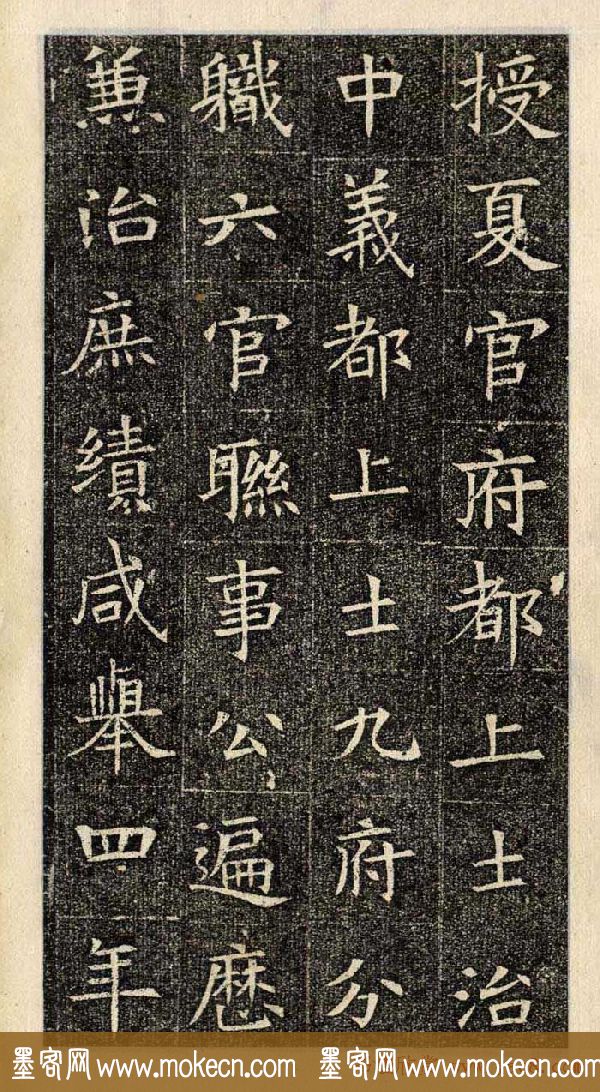 授夏官府都上士治
中義都上士九府分
職六官聯事公遍歴
兼治庶績咸舉四年
墨客网 www.mokecn.com 墨客网 www.mokecn.com